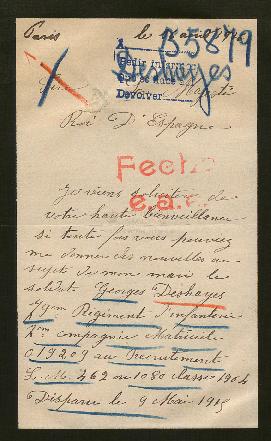 Paris le
B5879
Deshayes
A
Devolver
Sa Majesté
Roi D'Espagne
Fecha
e.a.
Je viens solliciter de
votre haute bienveillance
si toute fois vous pouviez
me donner des nouvelles au
sujet de mon mari le
soldat Georges Deshayes
79em Régiment d'infanterie
2em compagnie Matricule
019209 au Recrutement
S. M. 462 ou 1080 classe 1904
Disparu le 9 Mai 1915